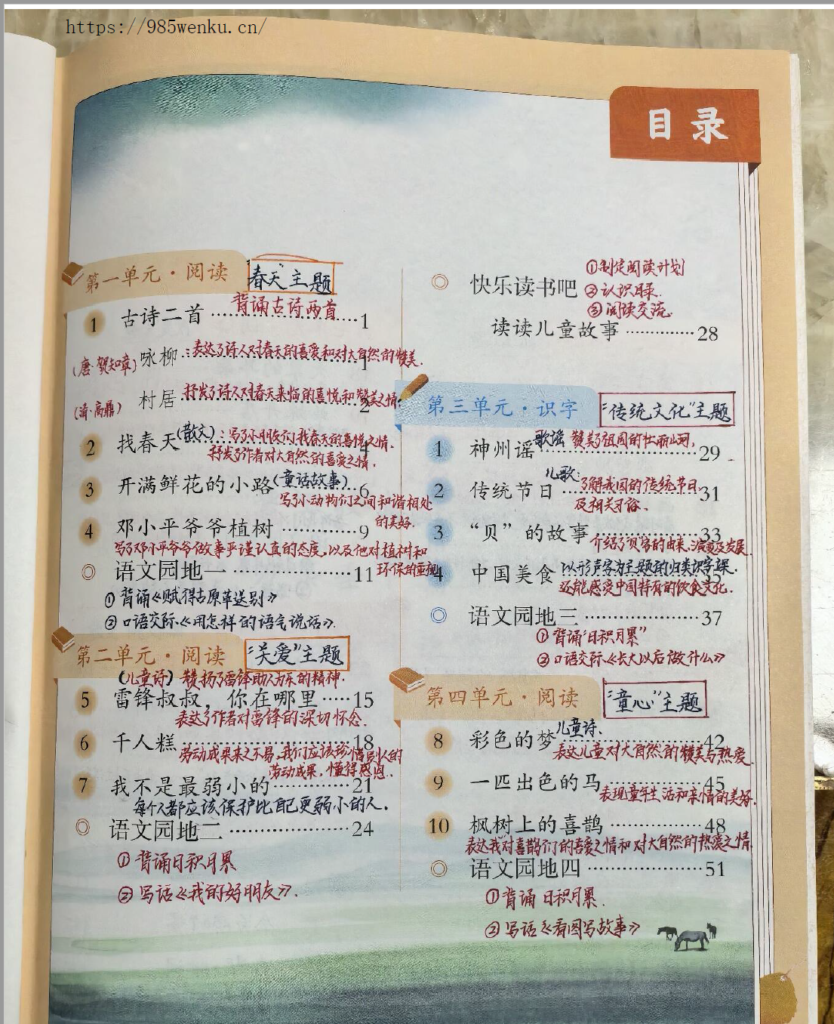 https://985wenku.cn/
目录
第一单元·阅读 春天主题
背诵古诗两首
1 古诗二首……………1
(唐·贺知章) 咏柳 表达了诗人对春天的喜爱和对大自然的赞美. 1
(清·高鼎) 村居 抒发了诗人对春天来临的喜悦和赞美之情. 2
2 找春天 (散文) 写了小朋友们找春天的喜悦之情. 4
抒发了作者对大自然的喜爱之情.
3 开满鲜花的小路 (童话故事) 6
写了小动物们之间和谐相处
的美好.
4 邓小平爷爷植树……………9
写了邓小平爷爷做事严谨认真的态度,以及他对植树和
环保的重视
语文园地一……………11
①背诵《赋得古原草送别》
②口语交际《用怎样的语气说话》.
第二单元·阅读 “关爱”主题
(儿童诗) 赞扬了雷锋助人为乐的精神.
5 雷锋叔叔,你在哪里……15
表达了作者对雷锋的深切怀念.
6 千人糕……………18
劳动成果来之不易,我们应该珍惜别人的
劳动成果,懂得感恩.
7 我不是最弱小的……………21
每个人都应该保护比自己更弱小的人.
语文园地二……………24
①背诵日积月累
②写话《我的好朋友》.
快乐读书吧 ①制定阅读计划
②认识目录.
③阅读交流.
读读儿童故事……………28
第三单元·识字 “传统文化”主题
1 神州谣 歌谣 赞美了祖国的壮丽山河. 29
儿歌:
2 传统节日 了解我国的传统节日 31
及相关习俗.
3 “贝”的故事……………33
介绍了贝字的由来、演变及发展.
4 中国美食 以形声字为主题的归类识字课. 35
还能感受中国特有的饮食文化.
语文园地三……………37
①背诵“日积月累”
②口语交际《长大以后做什么》
第四单元·阅读 “童心”主题
8 彩色的梦 儿童诗. 42
表达儿童对大自然的赞美与热爱.
9 一匹出色的马……………45
表现童年生活和亲情的美好.
10 枫树上的喜鹊……………48
表达我对喜鹊们的喜爱之情和对大自然的热爱之情.
语文园地四……………51
①背诵日积月累.
②写话《看图写故事》